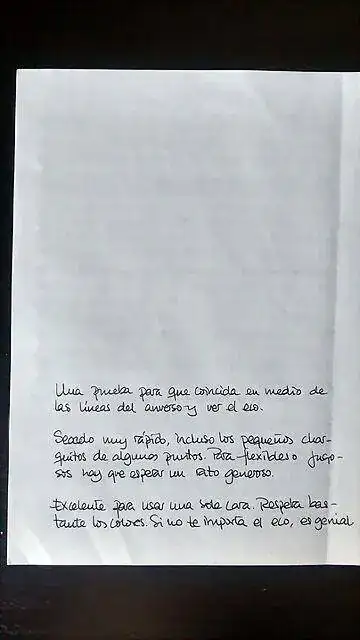 Una prueba para que coincida en medio de
las líneas del anverso y ver el eco.
Secado muy rápido, incluso los pequeños char-
quitos de algunos puntos. Para flexibles o jugo-
sos hay que esperar un rato generoso.
Excelente para usar una sola cara. Respeta bas-
tante los colores. Si no te importa el eco, es genial